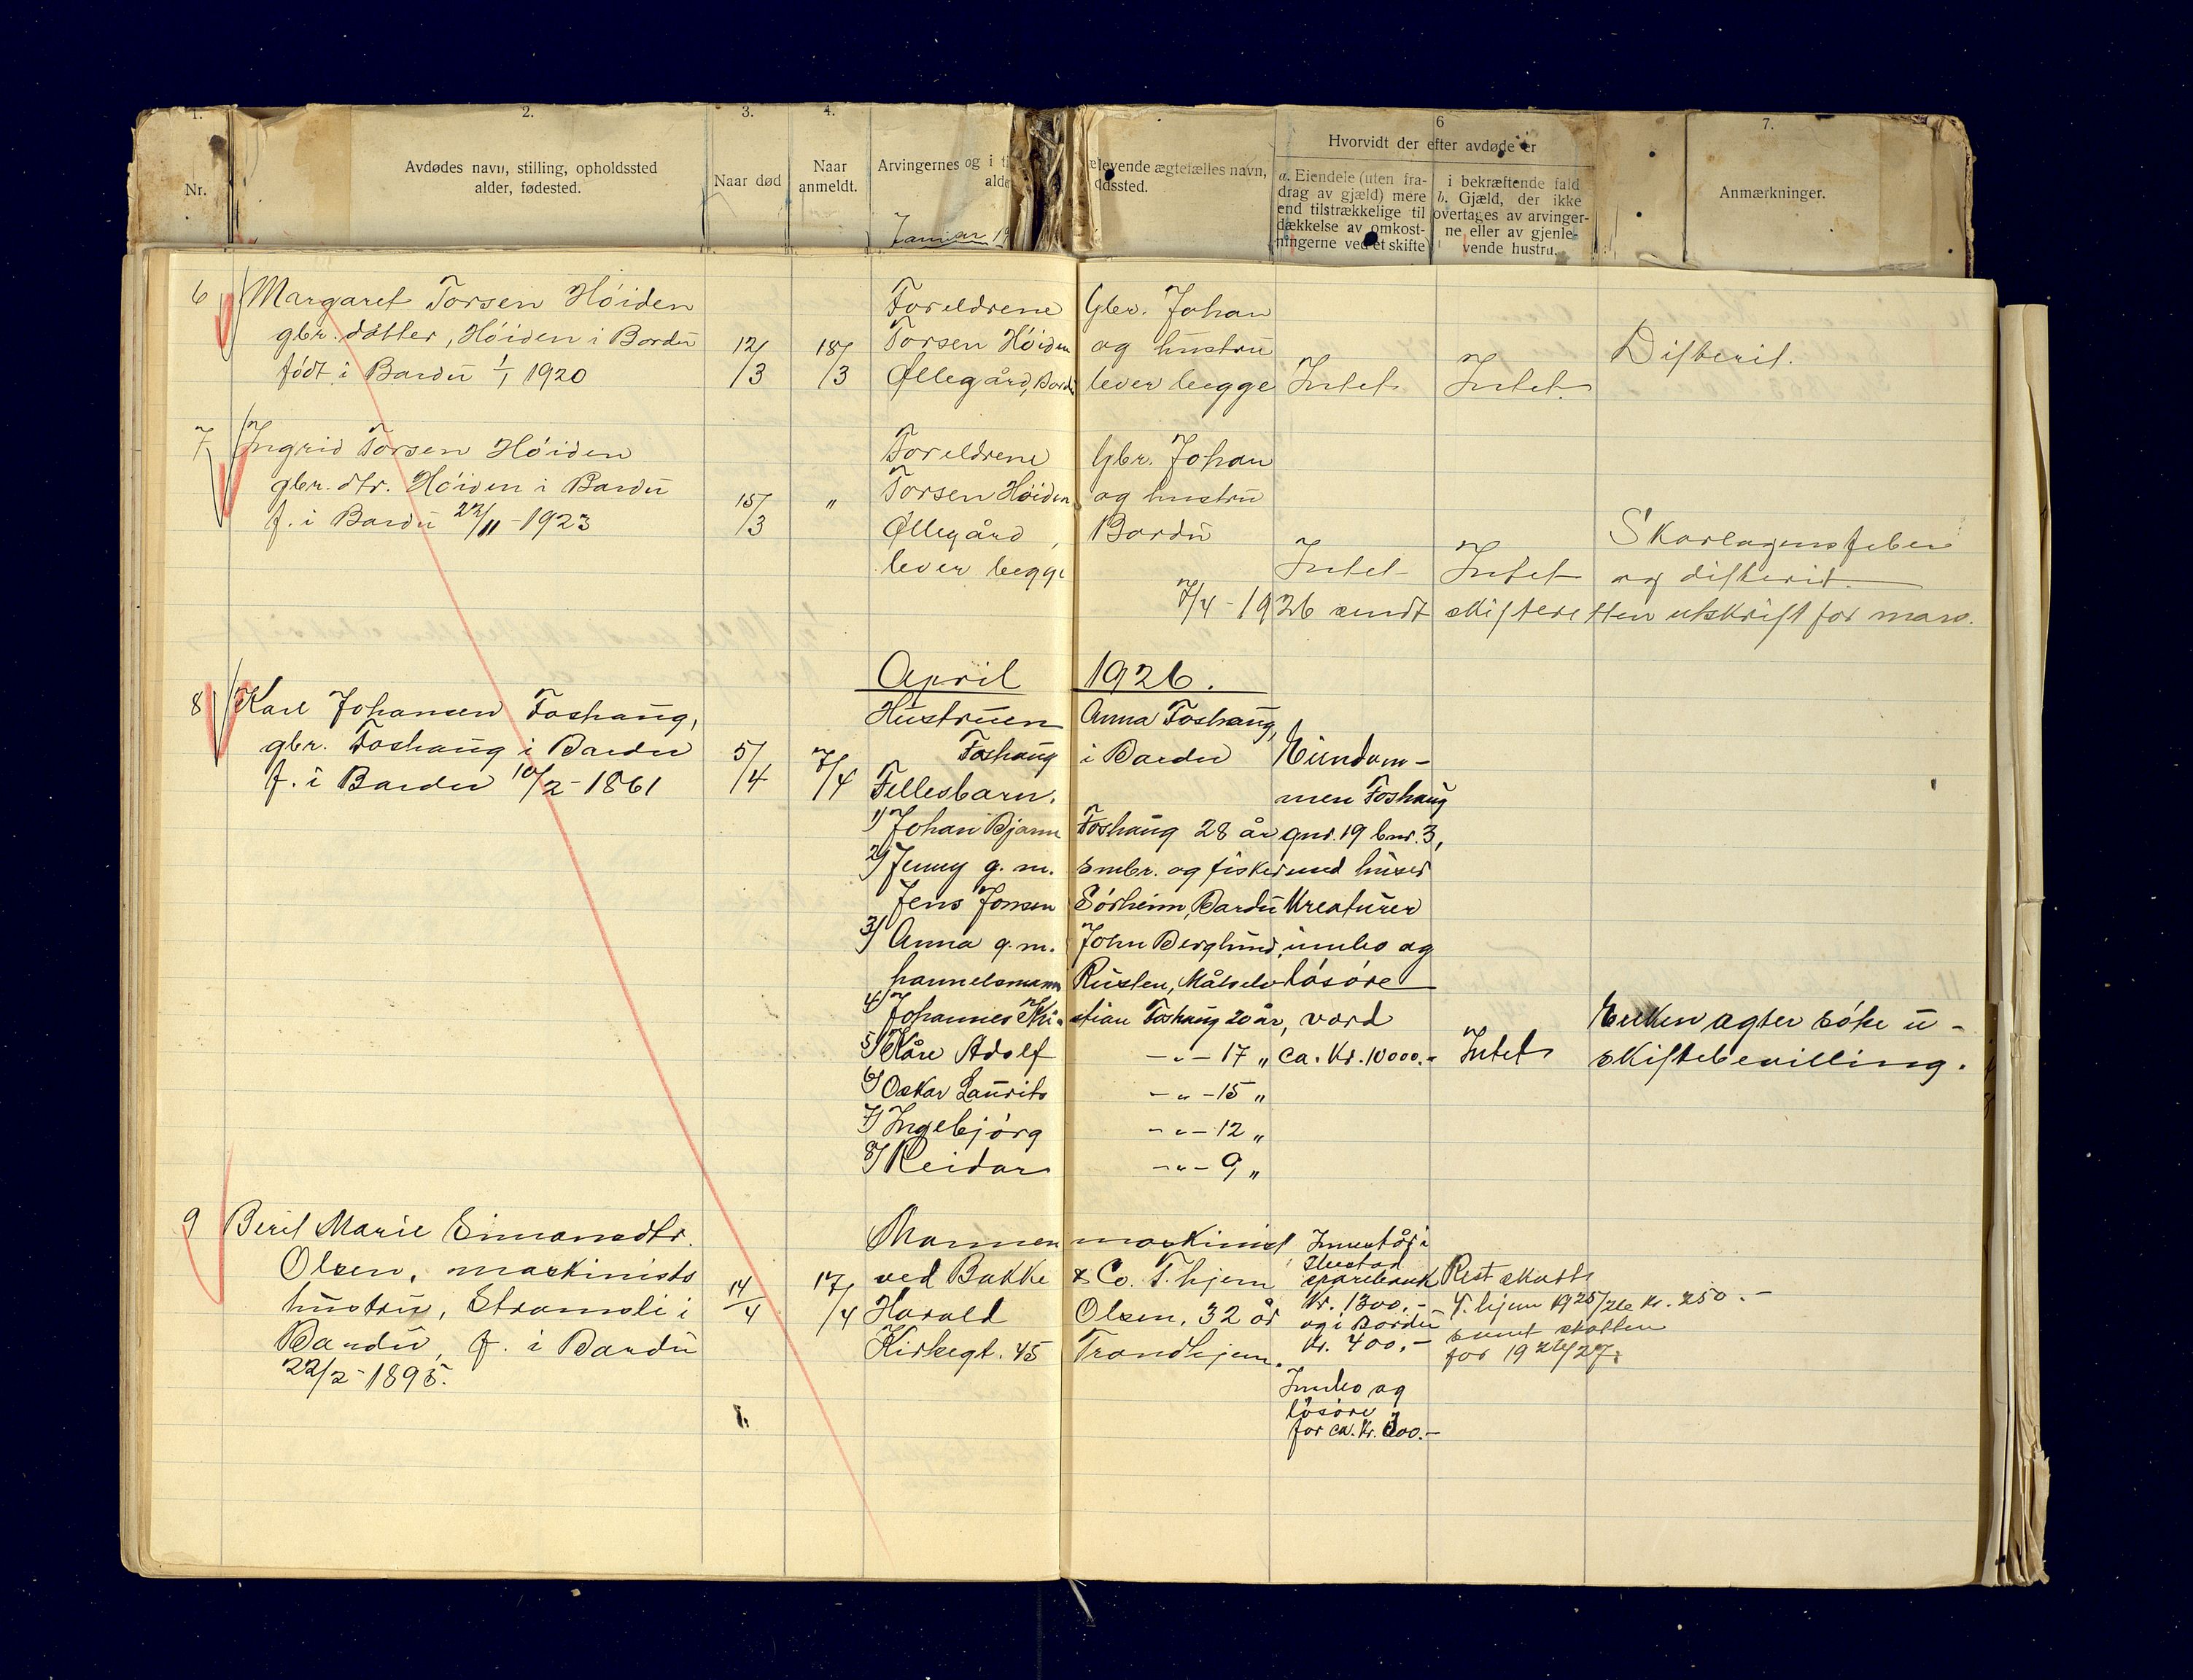 1.
2.
3.
4.
6
7.
Nr.
Avdødes navn, stilling, opholdssted
alder, fødested.
Naar død
Naar
anmeldt.
Arvingernes og i
alde
elevende ægtefælles navn,
dssted.
Hvorvidt der efter avdøde er
a. Eiendele (uten fra-
drag av gjæld) mere
end tilstrækkelige til
dækkelse av omkost-
ningerne ved et skifte
i bekræftende fald
b. Gjæld, der ikke
overtages av arvinger-
ne eller av gjenle-
vende hustru.
Anmærkninger.
Januar 19
6 Margaret Torsen Høiden
gbr. datter, Høiden i Bardu
født i Bardu 1/1 1920
12/3
18/3
Foreldrene Gbr. Johan
Torsen Høiden og hustru
Øllegård, Bardu lever begge
Intet
Intet.
Difterit.
7 Ingrid Torsen Høiden
gbr. dtr. Høiden i Bardu
f. i Bardu 23/11-1923
15/3
"
Foreldrene Gbr. Johan
Torsen Høiden og hustru
Øllegård, Bardu
lever begge
Intet
Intet
Skarlagensfeber
og difterit
7/4-1926 sendt skifteretten utskrift for mars.
April 1926.
8 Karl Johansen Foshaug,
gbr. Foshaug i Bardu
f. i Bardu 10/2-1861
5/4
7/4
Hustruen Anna Foshaug,
Foshaug i Bardu
Fellesbarn.
1) Johan Bjarne Foshaug 28 år
2) Jenny g. m. smbr. og fisker
Jens Jonsen Sørheim, Bardu
3) Anna g. m. John Berglund,
hannelsmann Rusten, Målselv
4) Johannes Kristian Foshaug 20 år,
5) Kåre Adolf -"- 17 "
6) Oskar Laurits -"- 15 "
7) Ingebjørg -"- 12 "
8) Reidar -"- 9 "
Eiendom-
men Foshaug
gnr. 19 bnr. 3,
med huser
Kreaturer
innbo og
løsøre
verd
ca. Kr. 10000.-
Intet
Enken agter søke u-
skiftebevilling.
9 Berit Marie Simonsdtr.
Olsen, maskinists
hustru, Strømsli i
Bardu, f. i Bardu
22/2-1895.
14/4
17/4
Mannen maskinist
ved Bakke & Co. T.hjem
Harald Olsen, 32 år
Kirkegt. 45 Trondhjem.
Innestår i
Ibestad
sparebank
Kr. 1300.-
og i Bardu
Kr. 400.-
Innbo og
løsøre
for ca. Kr. 300.-
Rest skatt
T.hjem 1925/26 kr. 250.-
samt skatten
for 1926/27.